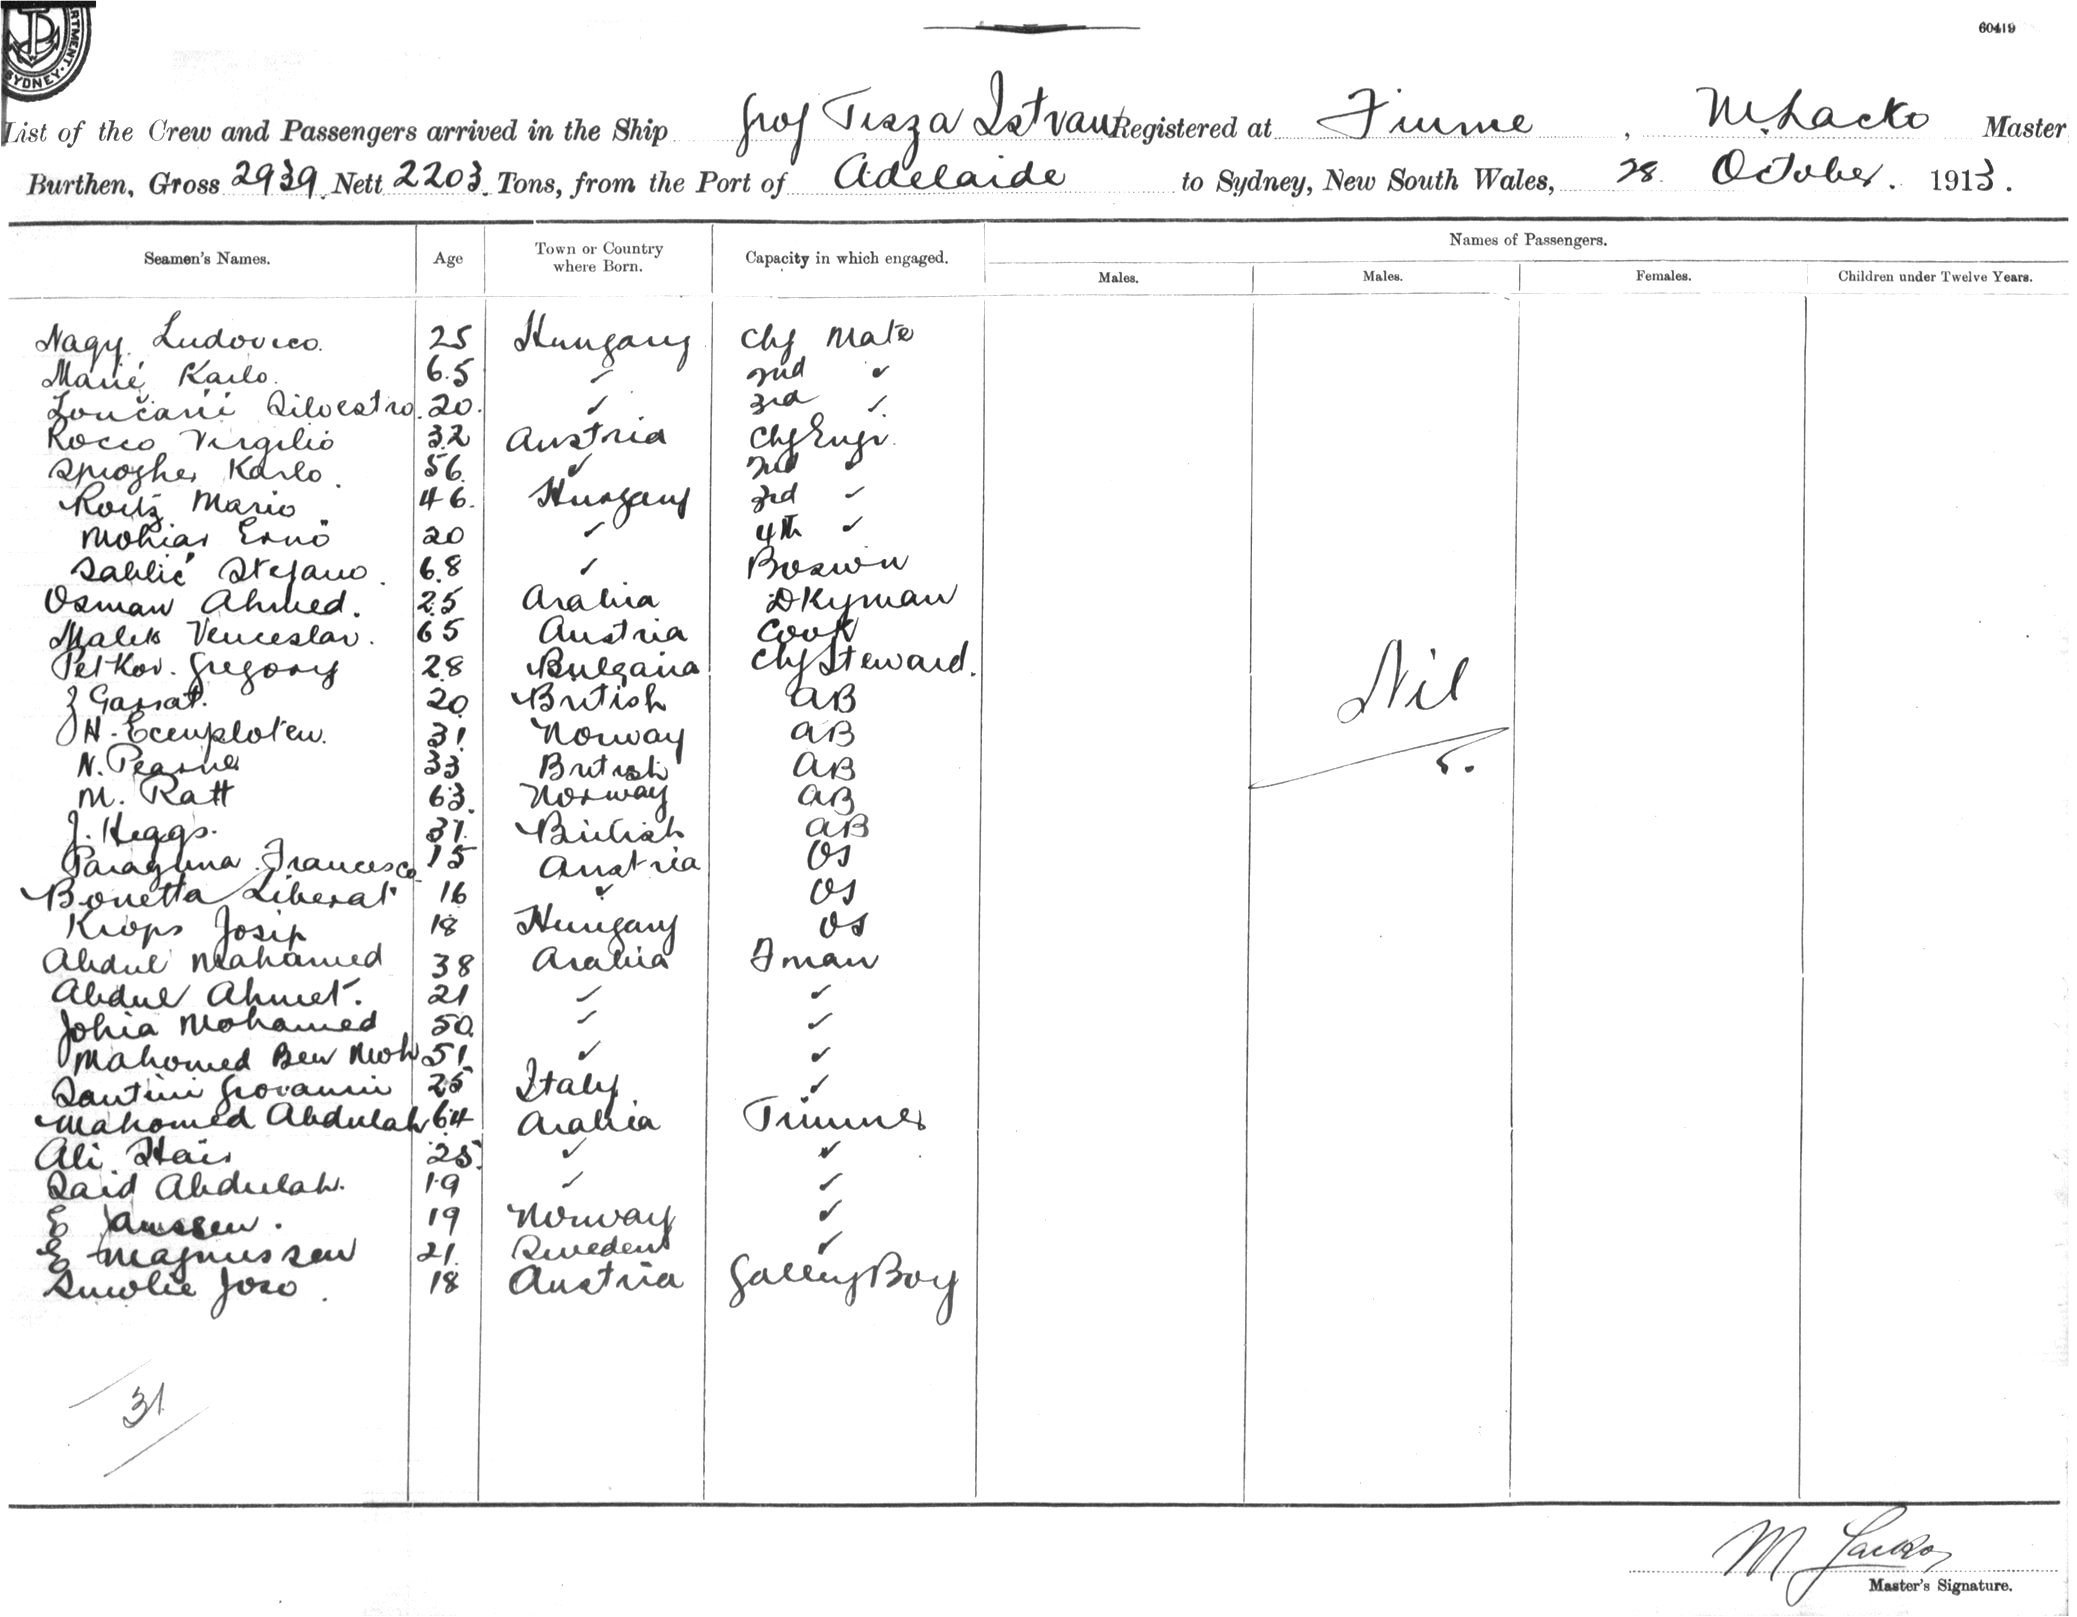 DEPARTMENT. SYDNEY.
60419
List of the Crew and Passengers arrived in the Ship Grof Tisza Istvan Registered at Fiume, M. Lacko Master
Burthen, Gross 2939 Nett 2203 Tons, from the Port of Adelaide to Sydney, New South Wales, 28 October. 1913.
Seamen's Names. Age Town or Country where Born. Capacity in which engaged. Names of Passengers.
Males. Males. Females. Children under Twelve Years.
Nagy Ludovico. 25 Hungary Chf Mate
Karlo. 65 ✓ 2nd ✓
Silvestro. 20. ✓ 3rd ✓
Rocco Virgilio 32 Austria Chf Engr.
Karlo. 56 ✓ 2nd ✓
Mario 46. Hungary 3rd ✓
Ernö 20 ✓ 4th ✓
Stefano. 68 ✓ Boswin
Osman Ahmed. 25 Arabia DKyman
Malek Venceslav. 65 Austria Cook
Petkov. Gregory 28 Bulgaria Chf Steward.
Garrat. 20 British AB
H. 31 Norway AB
N. 33 British AB
M. Ratt 63. Norway AB
J. Heggs. 31. British AB
Francesco 15 Austria OS
Bonetta Liberat 16 ✓ OS
Krops Josip 18 Hungary OS
Abdul Mahamed 38 Arabia Fman
Abdul Ahmet. 21 ✓ ✓
Johia Mohamed 50 ✓ ✓
Mahomed Ben Moh 51 ✓ ✓
Santini Giovanni 25 Italy ✓
Mahomed Abdulah 64 Arabia Trimmer
Ali 25 ✓ ✓
Said Abdulah. 19 ✓ ✓
E Janssen. 19 Norway ✓
E Magnussen 21. Sweden ✓
Smolic Joso. 18 Austria Galley Boy
Nil
31
M Lacko
Master's Signature.